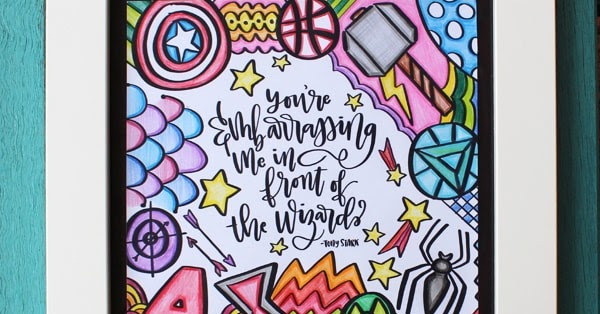 You're
Embarrassing
Me in
front of
the Wizards
-Tony Stark
A